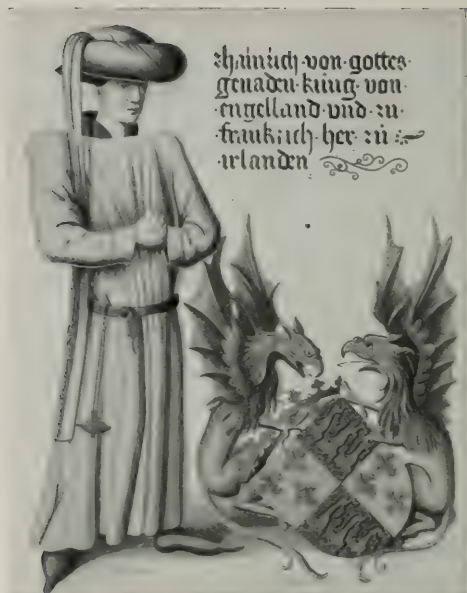 Hainrich·von·gottes·
genaden·kung·von·
engelland·vnd·zu·
·frankrich·her·zu·
irlanden